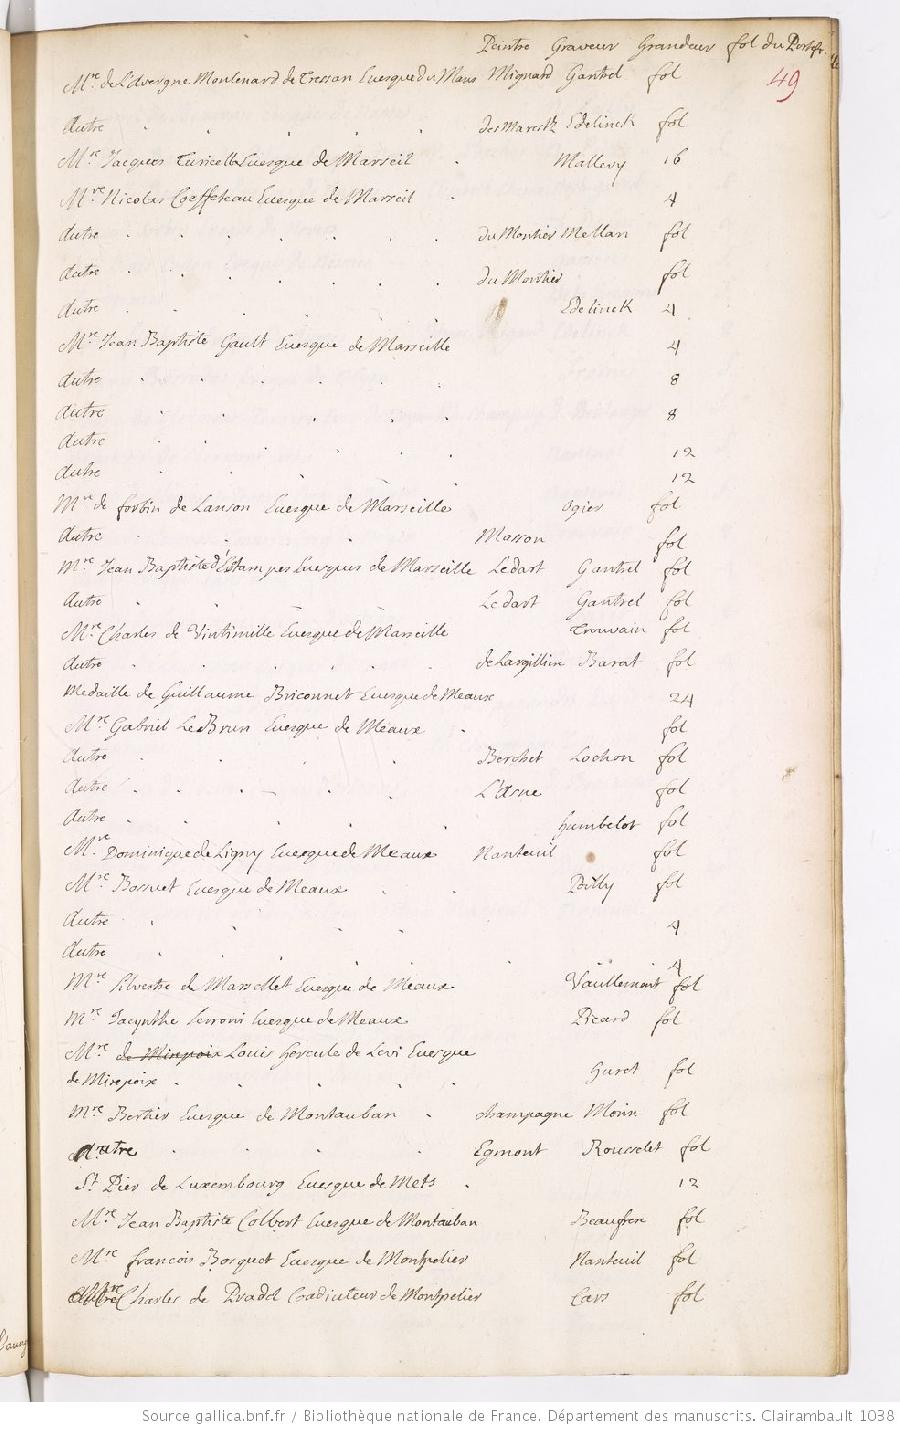 Peintre Graveur Grandeur fol du Portef.
49
Mre de Lavergne Montenard de Tressan Euesque du Mans Mignard Gantrel fol
Autre . . . . . des Marestz Edelinck fol
Mre Jacques Turicella Euesque de Marseil . Mallery 16
Mre Nicolas Coeffeteau Euesque de Marseil . 4
Autre . . . . . du Monstier Mellan fol
Autre . . . . . du Monstier fol
Autre . . . . . Edelinck 4
Mre Jean Baptiste Gault Euesque de Marseille 4
Autre . . . . . 8
Autre . . . . . 8
Autre . . . . . 12
Autre . . . . . 12
Mre de forbin de Lanson Euesque de Marseille ogier fol
Autre . . . Masson fol
Mre Jean Baptiste d'Estampes Euesques de Marseille Ledart Gantrel fol
Autre . . . Ledart Gantrel fol
Mre Charles de Vintimille Euesque de Marseille Trouvain fol
Autre . . . . . de Largilliere Barat fol
Medaille de Guillaume Briconnet Euesque de Meaux 24
Mre Gabriel Le Brun Euesque de Meaux . fol
Autre . . . . Berchet Lochon fol
Autre . . . . . L'Asne fol
Autre . . . . . humbelot fol
Mre Dominique de Ligny Euesque de Meaux Nanteuil fol
Mre Bossuet Euesque de Meaux . . Poilly fol
Autre . . . . 4
Autre . . . . . 4
Mre Silvestre de Marcellet Euesque de Meaux Vaullemont fol
Mre Jacynthe Serroni Euesque de Meaux Picard fol
Mre de Mirepoix Louis hercule de Levi Euesque
de Mirepoix . . . . . huret fol
Mre Bertier Euesque de Montauban . champagne Morin fol
Autre . . . . Egmont Rousselet fol
St Pier de Luxembourg Euesque de Mets . 12
Mre Jean Baptiste Colbert Euesque de Montauban Beaufrere fol
Mre francois Bosquet Euesque de Montpelier Nanteuil fol
Mre Charles de Pradel Coadiuteur de Montpelier Cars fol
Source gallica.bnf.fr / Bibliothèque nationale de France. Département des manuscrits. Clairambault 1038